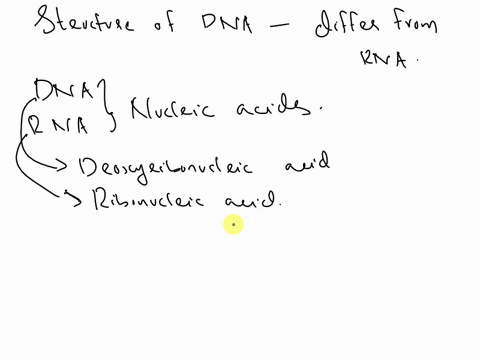 Structure of DNA — differ from
RNA.
DNA
RNA } Nucleic acids.
Deoxyribonucleic acid
Ribonucleic acid.